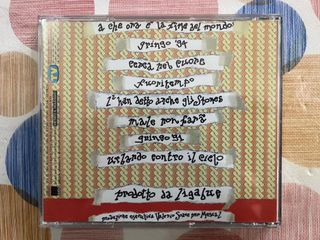 a che ora è la fine del mondo?
gringo '94
cerca nel cuore
fuoritempo
l'han detto anche gli stones
male non farà
gringo 91
urlando contro il cielo
prodotto da ligabue
produzione esecutiva